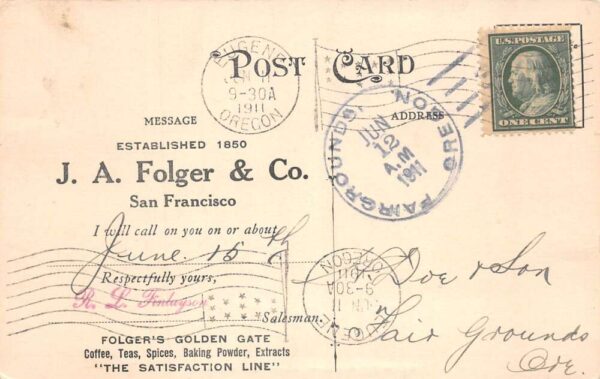 POST CARD
EUGENE
JUN 11
9-30A
1911
OREGON
U.S. POSTAGE
ONE CENT
MESSAGE
ADDRESS
FAIRGROUNDS, OREGON.
JUN
12
A.M
1911
ESTABLISHED 1850
J. A. Folger & Co.
San Francisco
I will call on you on or about
June. 15th
Respectfully yours,
R. L. Finlayson
Salesman.
FOLGER'S GOLDEN GATE
Coffee, Teas, Spices, Baking Powder, Extracts
"THE SATISFACTION LINE"
EUGENE
JUN 11
9-30A
1911
OREGON
Doe & Son
Fair Grounds
Ore.